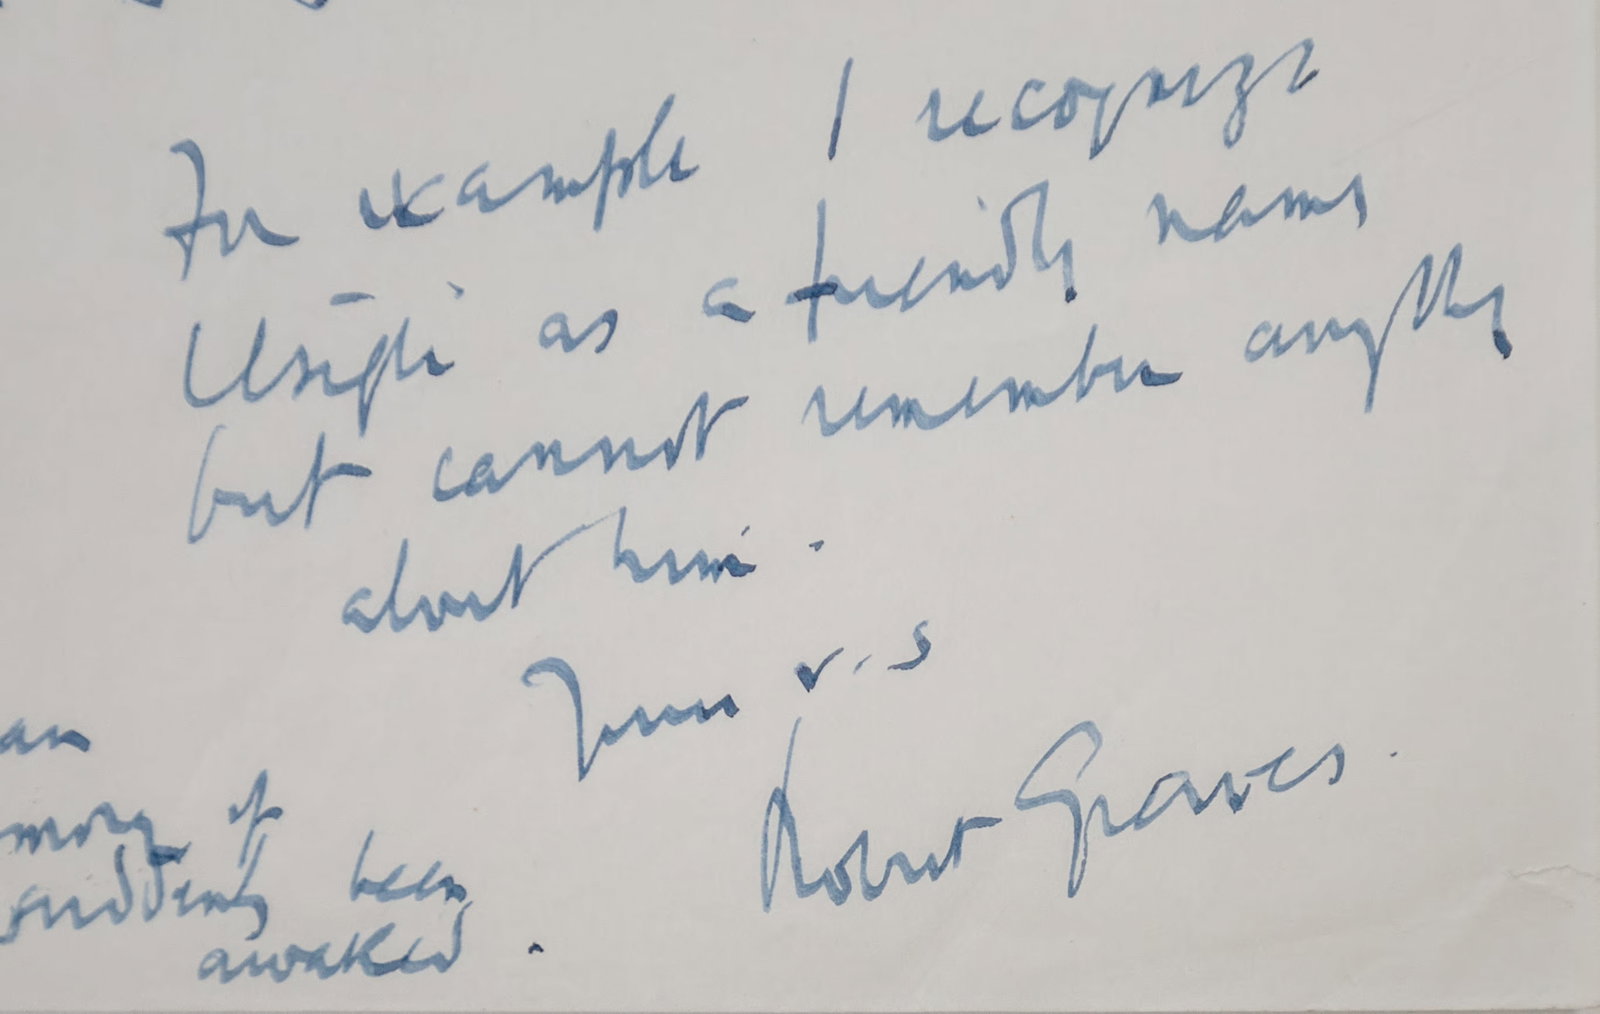 For example I recognize
Usigli as a friendly name
but cannot remember anything
about him.
Yours v. s
Robert Graves.
an
mory of
suddenly been
awaked.